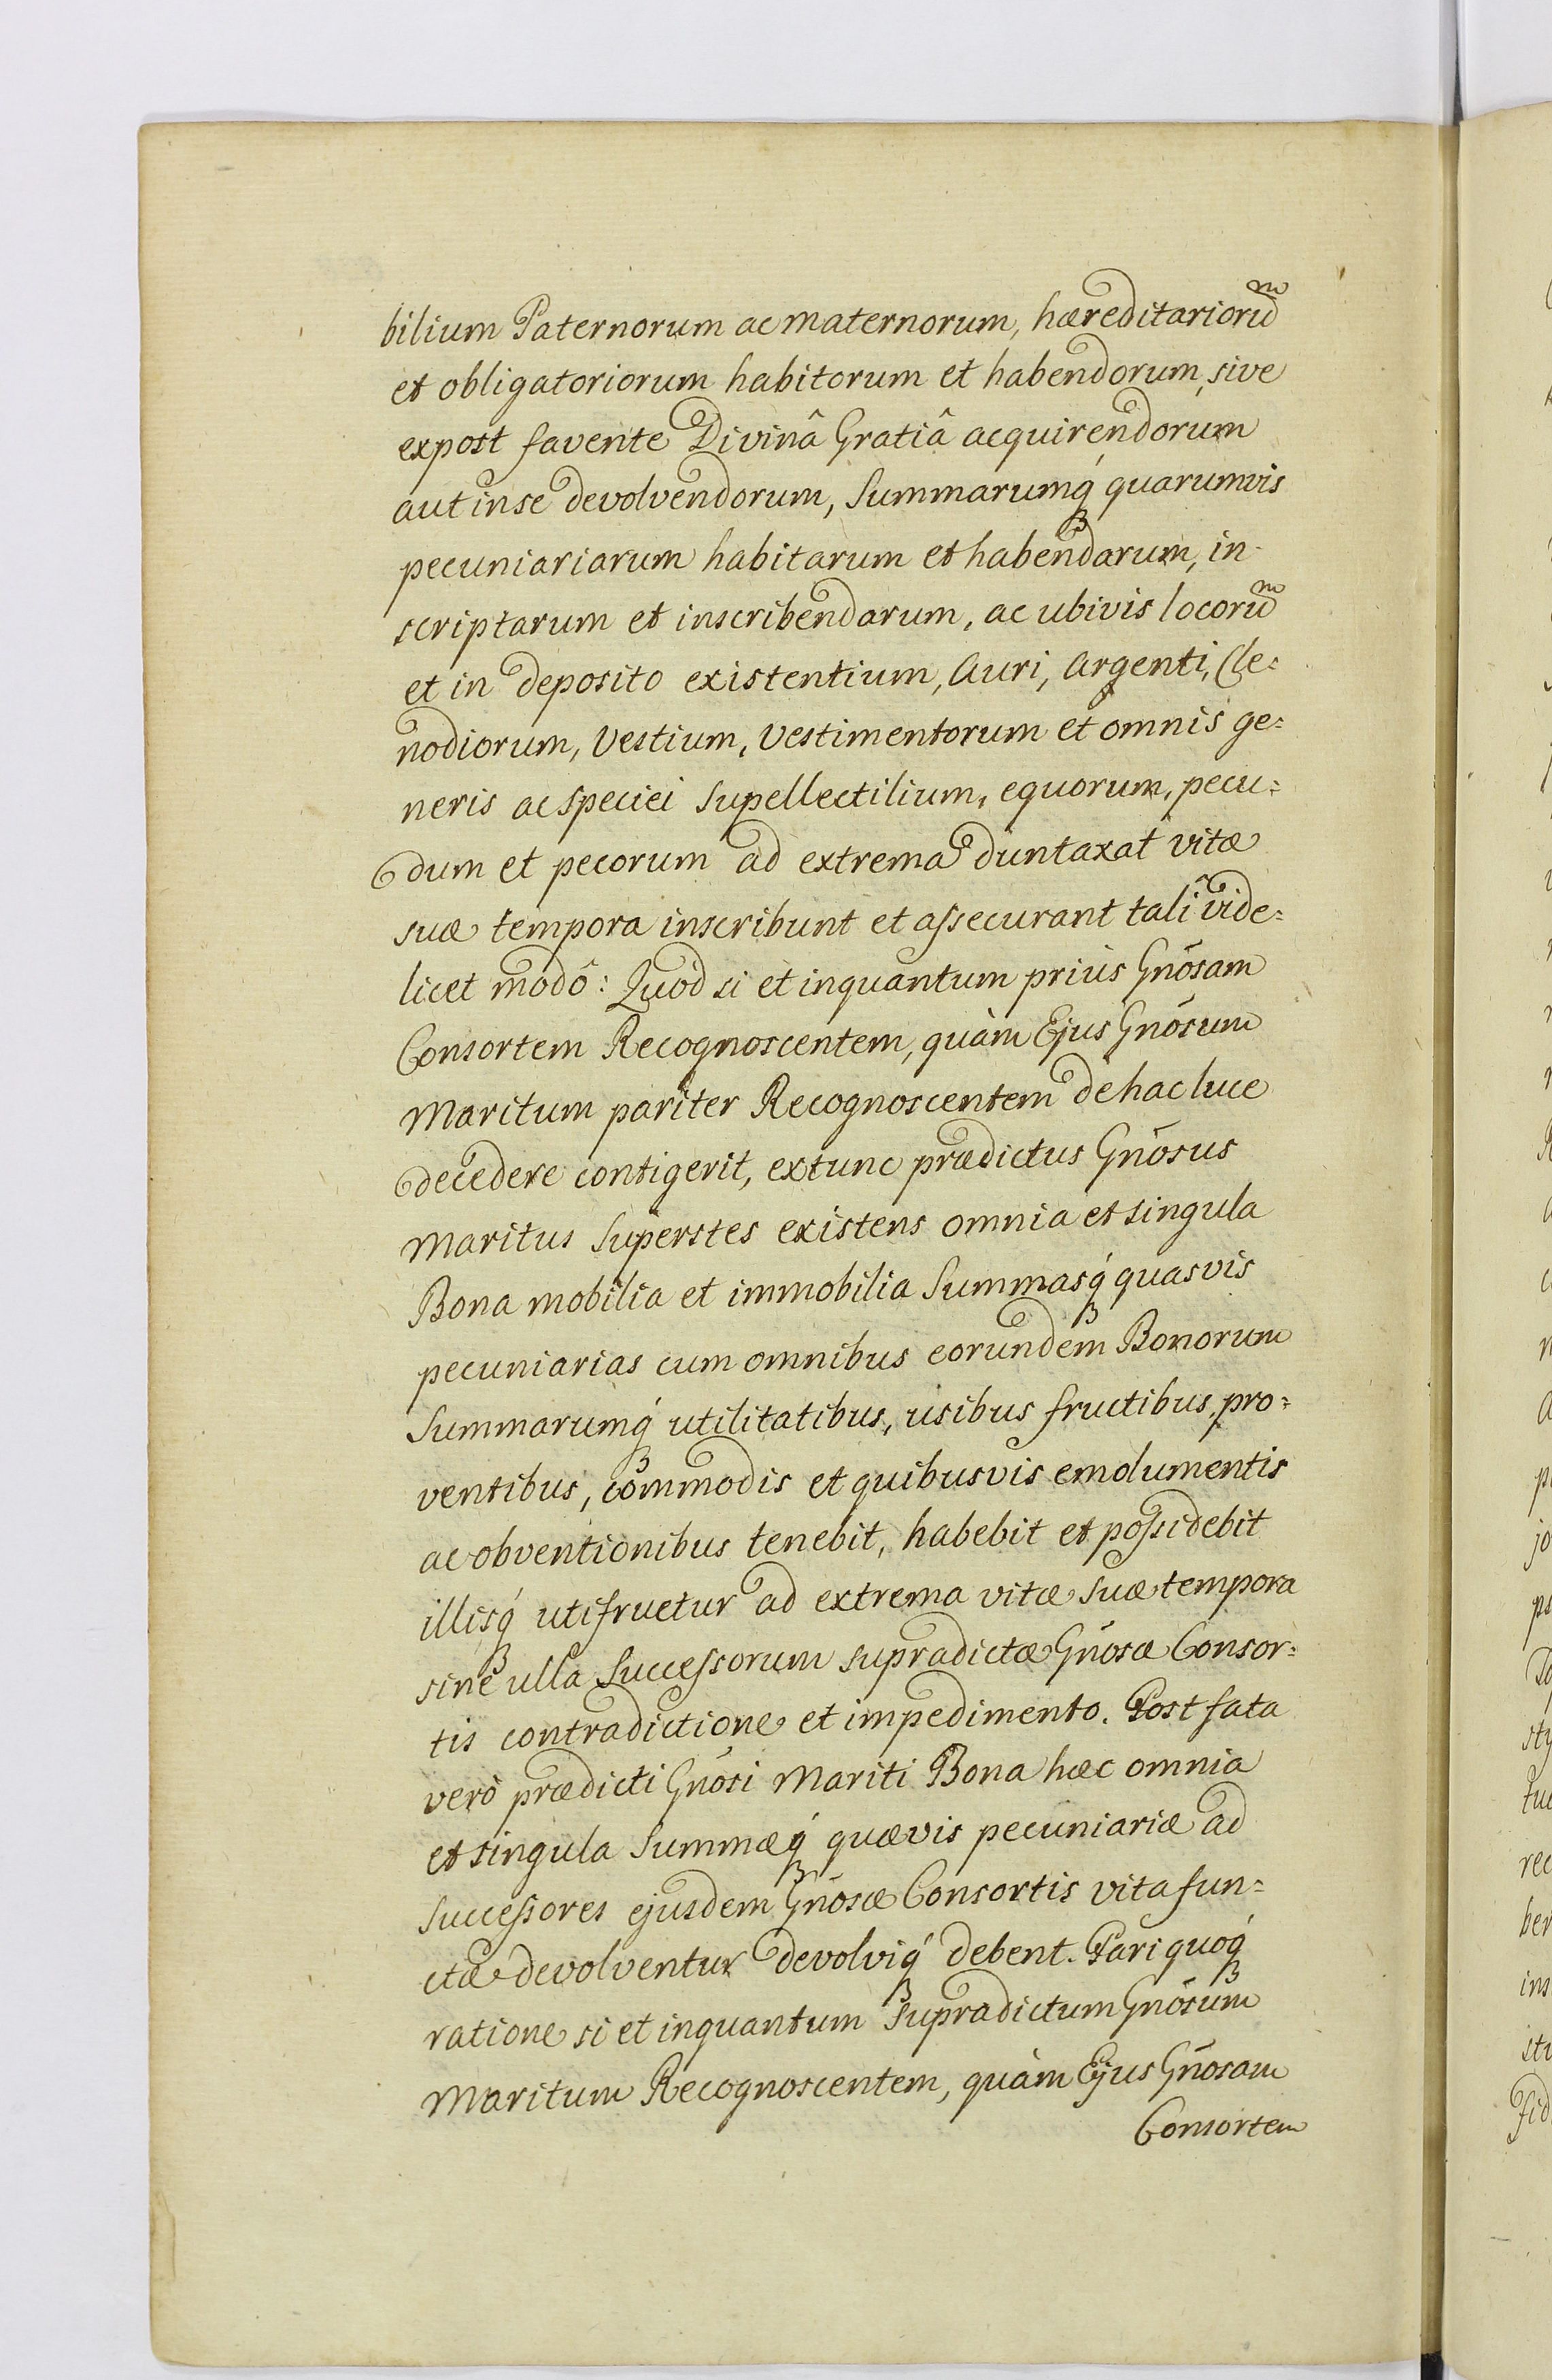 bilium Paternorum ac maternorum, hæreditariorũ
et obligatoriorum habitorum et habendorum, sive
expost favente Divinâ Gratiâ acquirendorum
aut in se devolvendorum, Summarumq́ quarumvis
pecuniariarum habitarum et habendarum, in-
scriptarum et inscribendarum, ac ubivis locorũ
et in deposito existentium, Auri, Argenti, Cle=
nodiorum, Vestium, Vestimentorum et omnis ge=
neris ac Speciei Supellectilium, equorum, pecu=
dum et pecorum ad extrema duntaxat vitæ
suæ tempora inscribunt et assecurant tali vide=
licet modô: Quod si et inquantum priùs Gnōsam
Consortem Recognoscentem, quàm Ejus Gnōsum
Maritum pariter Recognoscentem de hac luce
decedere contigerit, extunc prædictus Gnōsus
Maritus Superstes existens omnia et singula
Bona mobilia et immobilia Summasq́ quasvis
pecuniarias cum omnibus eorundem Bonorum
Summarumq́ utilitatibus, usibus fructibus, pro=
ventibus, commodis et quibusvis emolumentis
ac obventionibus tenebit, habebit et possidebit
illisq́ utifruetur ad extrema vitæ suæ tempora
sine ulla Successorum supradictæ Gnōsæ Consor=
tis contradictione et impedimento. Post fata
verò prædicti Gnōsi Mariti Bona hæc omnia
et singula Summæq́ quævis pecuniariæ ad
Successores ejusdem Gnōsæ Consortis vita fun=
ctæ devolventur devolviq́ debent. Pari quoq́
ratione si et inquantum Supradictum Gnōsum
Maritum Recognoscentem, quàm Ejus Gnōsam
Consortem